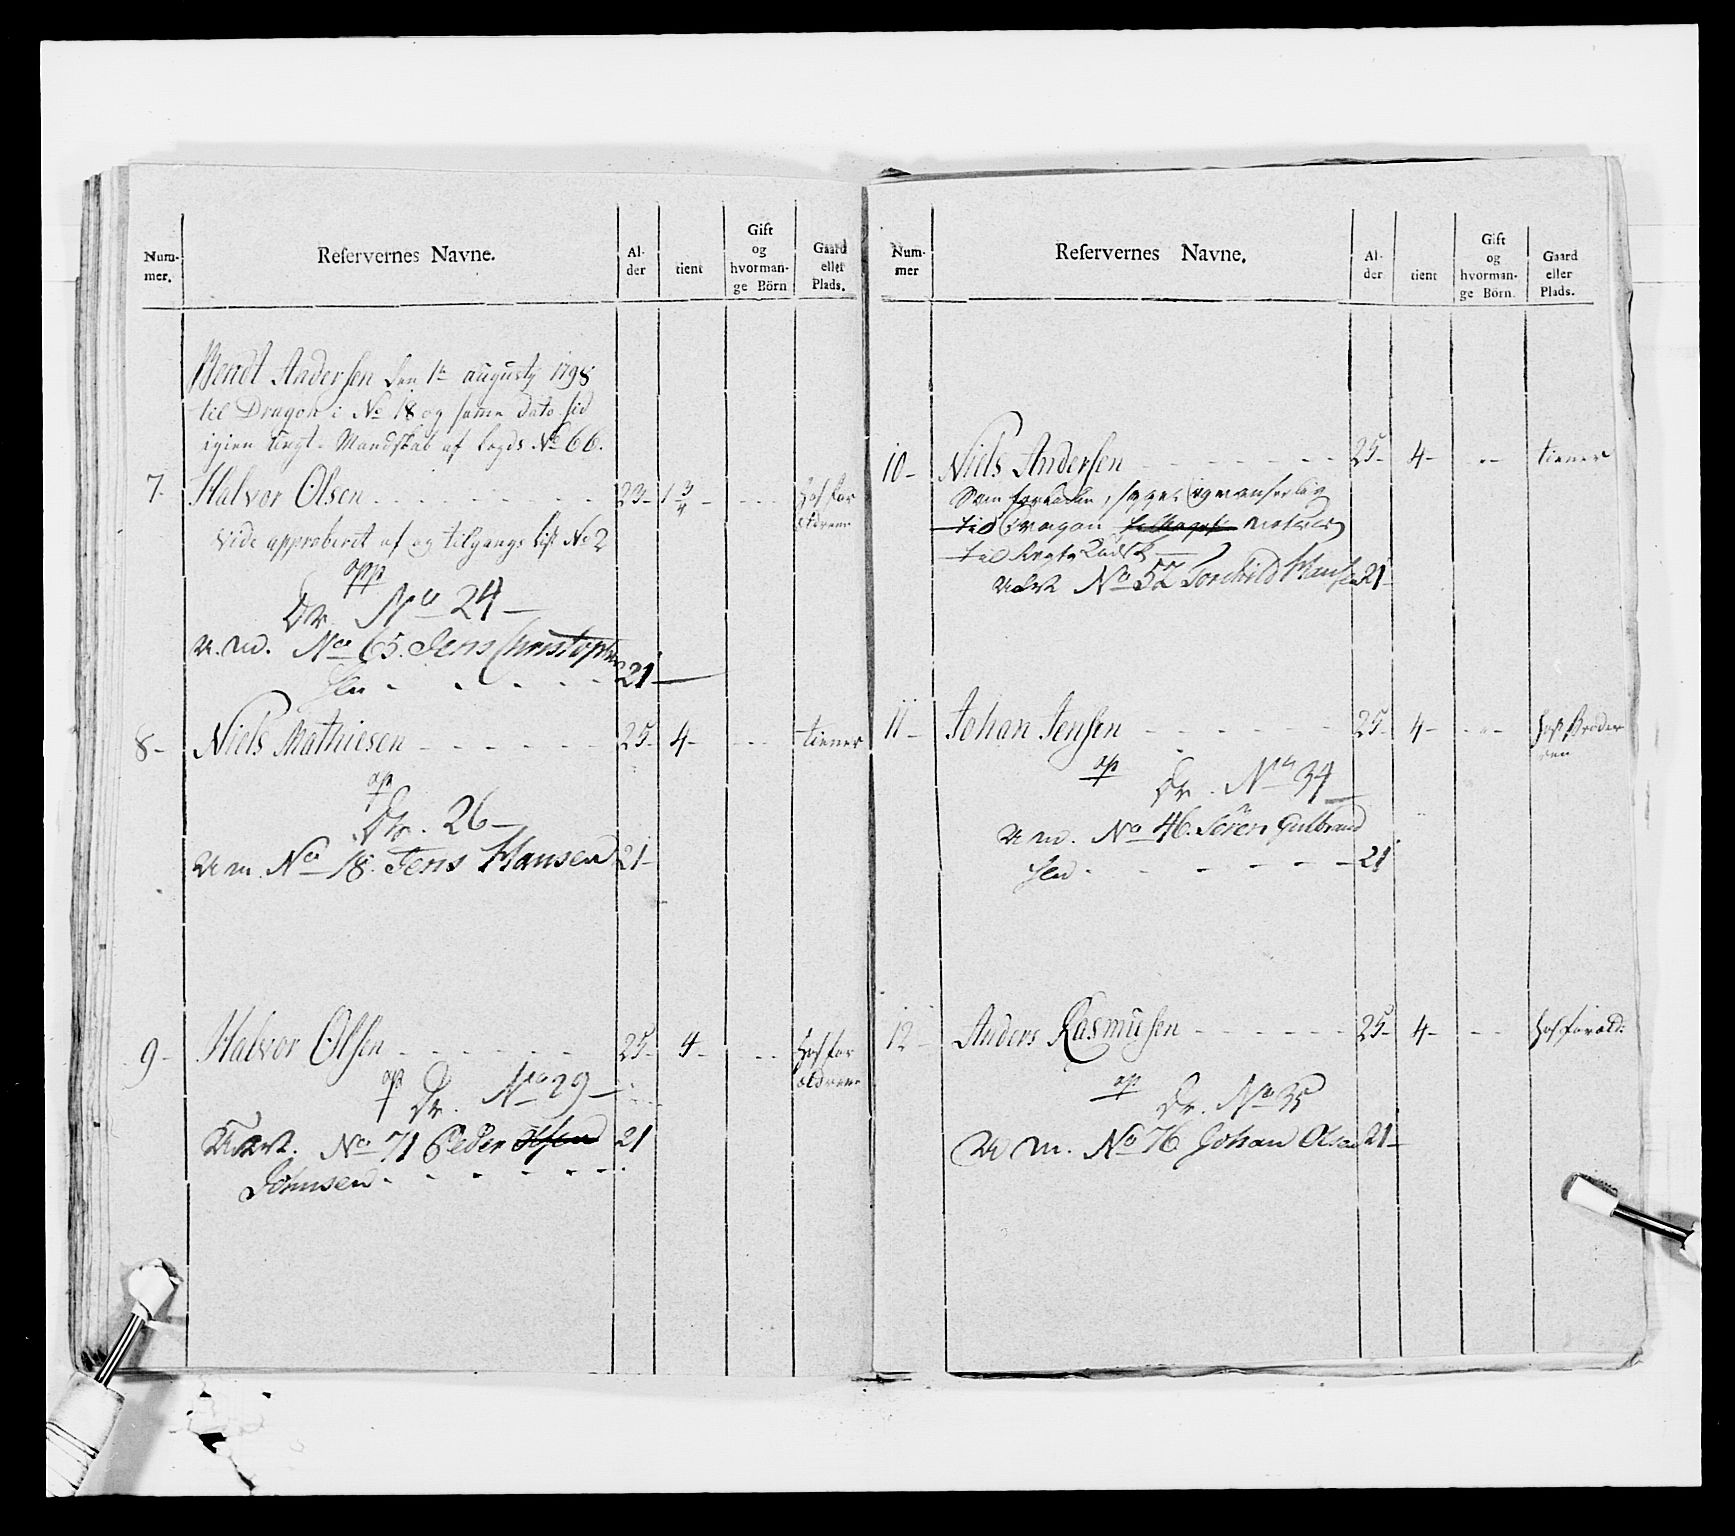 Num-
mer.
Reservernes Navne.
Al-
der
tient
Gift
og
hvorman-
ge Börn
Gaard
eller
Plads.
Bendt Andersen den 1te augusty 1798
til Dragon i No 18 og samme dato
igien ungt Mandskab af Legds No 66.
7- Halvor Olsen - - - - - 23- 1 3/4 - - - - hos for
ældrene
vide approberet af og tilgangs list No 2
opp
Dr. No 24 -
u. m. No 65. Jens Christopher
sen - - - - - 21 -
8- Niels Mathiesen - - - - - - 25- 4- - - - tiener
op
Dr. 26 -
U m. No 18. Jens Hansen 21-
9- Halvor Olsen - - - - - - 25- 4- - - - hos for
ældrene
op Dr. No 29 -
No 71 Peder Olsen 21
Johnsen - - - - - - -
Num-
mer
Reservernes Navne.
Al-
der
tient
Gift
og
hvorman-
ge Börn.
Gaard
eller
Plads.
10- Niels Andersen - - - - - - 25- 4- - - tiener
Som
til Dragon
til
No 52 Torchild Hansen 21-
11- Johan Jensen - - - - - - 25- 4- - - - hos Broder
en
op Dr. No 34
U m. No 46. Sören Gulbrand
sen - - - - - 21
12- Anders Rasmusen - - - - - - 25- 4- - - - hos foræld:
op
Dr. No 35
U m. No 76 Johan Olsen 21-